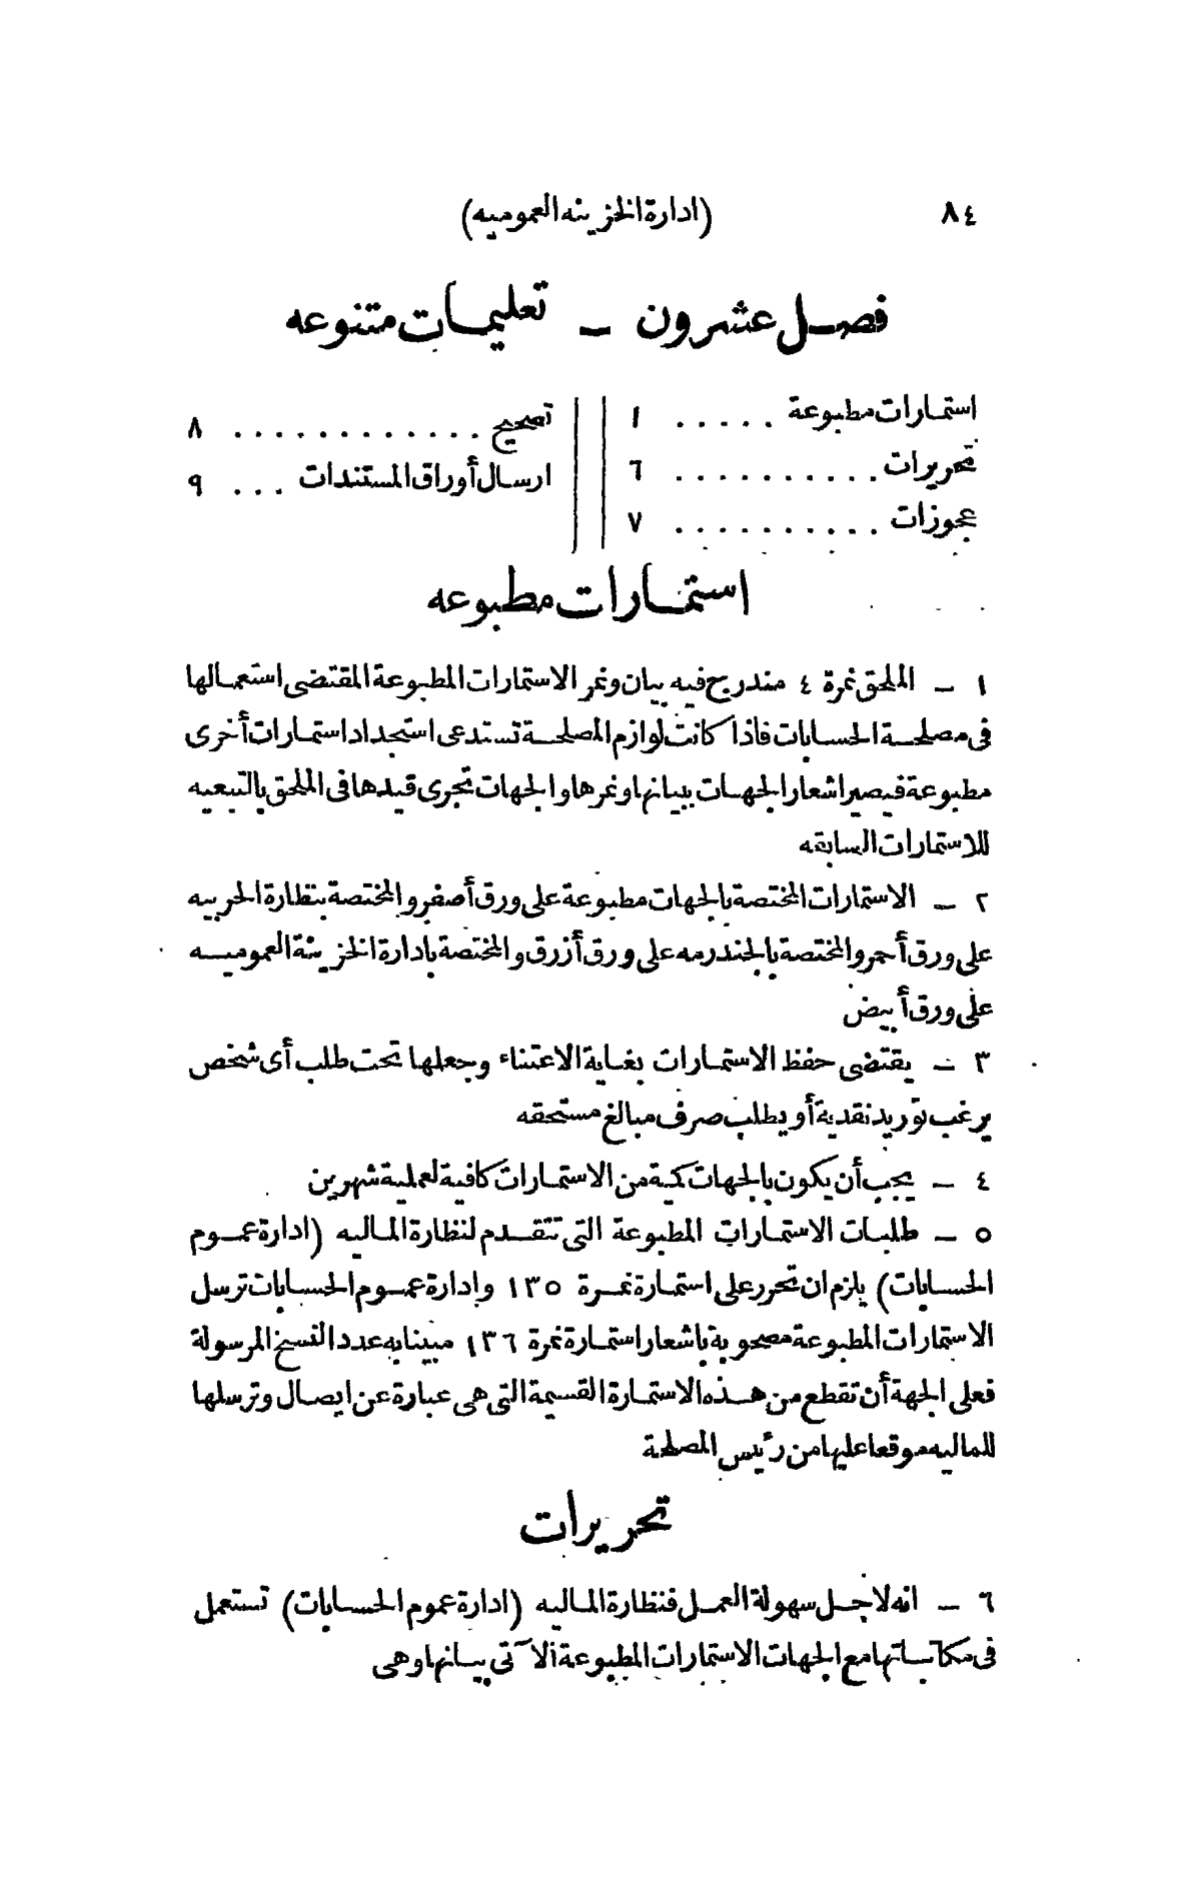 ٨٤ (ادارة الخزينه العموميه)
فصل عشرون — تعليمات متنوعه
استمارات مطبوعة ..... ١
تحريرات .......... ٦
عجوزات .......... ٧
تصحيح ............ ٨
ارسال أوراق المستندات ... ٩
استمارات مطبوعه
١ — الملحق نمرة ٤ مندرج فيه بيان ونمر الاستمارات المطبوعة المقتضى استعمالها
فى مصلحة الحسابات فاذا كانت لوازم المصلحة تستدعى استجداد استمارات أخرى
مطبوعة فيصير اشعار الجهات ببيانها ونمرها والجهات تجرى قيدها فى الملحق بالتبعيه
للاستمارات السابقه
٢ — الاستمارات المختصة بالجهات مطبوعة على ورق أصفر والمختصة بنظارة الحربيه
على ورق أحمر والمختصة بالجندرمه على ورق أزرق والمختصة بادارة الخزينة العموميه
على ورق أبيض
٣ — يقتضى حفظ الاستمارات بغاية الاعتناء وجعلها تحت طلب أى شخص
يرغب توريد نقدية أو يطلب صرف مبالغ مستحقه
٤ — يجب أن يكون بالجهات كمية من الاستمارات كافية لعملية شهرين
٥ — طلبات الاستمارات المطبوعة التى تتقدم لنظارة الماليه (ادارة عموم
الحسابات) يلزم ان تحرر على استمارة نمرة ١٣٥ وادارة عموم الحسابات ترسل
الاستمارات المطبوعة مصحوبة باشعار استمارة نمرة ١٣٦ مبينا به عدد النسخ المرسولة
فعلى الجهة أن تقطع من هذه الاستمارة القسيمة التى هى عبارة عن ايصال وترسلها
للماليه موقعا عليها من رئيس المصلحة
تحريرات
٦ — انه لاجل سهولة العمل فنظارة الماليه (ادارة عموم الحسابات) تستعمل
فى مكاتباتها مع الجهات الاستمارات المطبوعة الآتى بيانها وهى